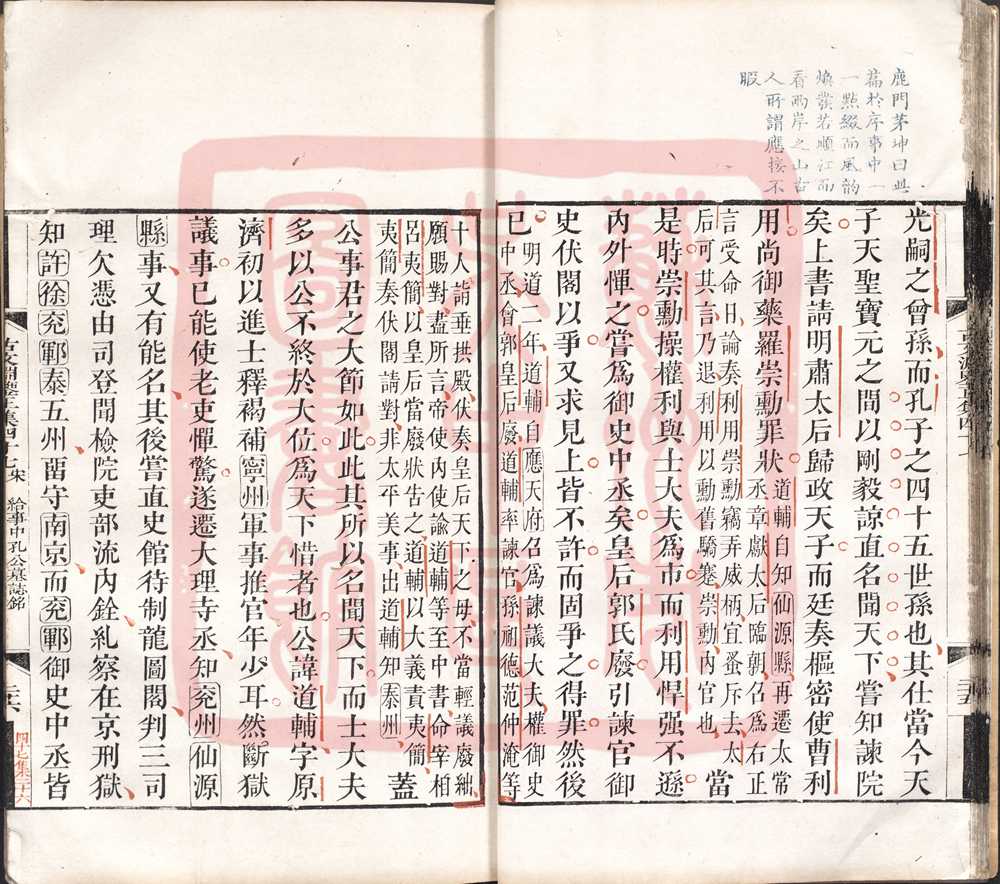 鹿門茅坤曰此
篇於序事中一
一點綴而風韵
煥發若順江而
看兩岸之山古
人所謂應接不
暇
光嗣之曾孫而孔子之四十五世孫也其仕當今天
子天聖寶元之間以剛毅諒直名聞天下嘗知諫院
矣上書請明肅太后歸政天子而廷奏樞密使曹利
用尚御藥羅崇勳罪狀道輔自知仙源縣再遷太常
丞章獻太后臨朝召為右正
言受命日論奏利用崇勳竊弄威柄宜蚤斥去太
后可其言乃退利用以勳舊驕蹇崇勳內官也當
是時崇勳操權利與士大夫為市而利用悍强不遜
內外憚之嘗為御史中丞矣皇后郭氏廢引諫官御
史伏閣以爭又求見上皆不許而固爭之得罪然後
已明道二年道輔自應天府召為諫議大夫權御史
中丞會郭皇后廢道輔率諫官孫祖德范仲淹等
十人詣垂拱殿伏奏皇后天下之母不當輕議廢絀
願賜對盡所言帝使內使諭道輔等至中書命宰相
呂夷簡以皇后當廢狀告之道輔以大義責夷簡
夷簡奏伏閣請對非太平美事出道輔知泰州蓋
公事君之大節如此此其所以名聞天下而士大夫
多以公不終於大位為天下惜者也公諱道輔字原
濟初以進士釋褐補寧州軍事推官年少耳然斷獄
議事已能使老吏憚驚遂遷大理寺丞知兖州仙源
縣事又有能名其後嘗直史館待制龍圖閣判三司
理欠憑由司登聞檢院吏部流內銓糺察在京刑獄
知許徐兖鄆泰五州畱守南京而兖鄆御史中丞皆
古文淵鑒正集四十七 宋 給事中孔公墓誌銘
三六